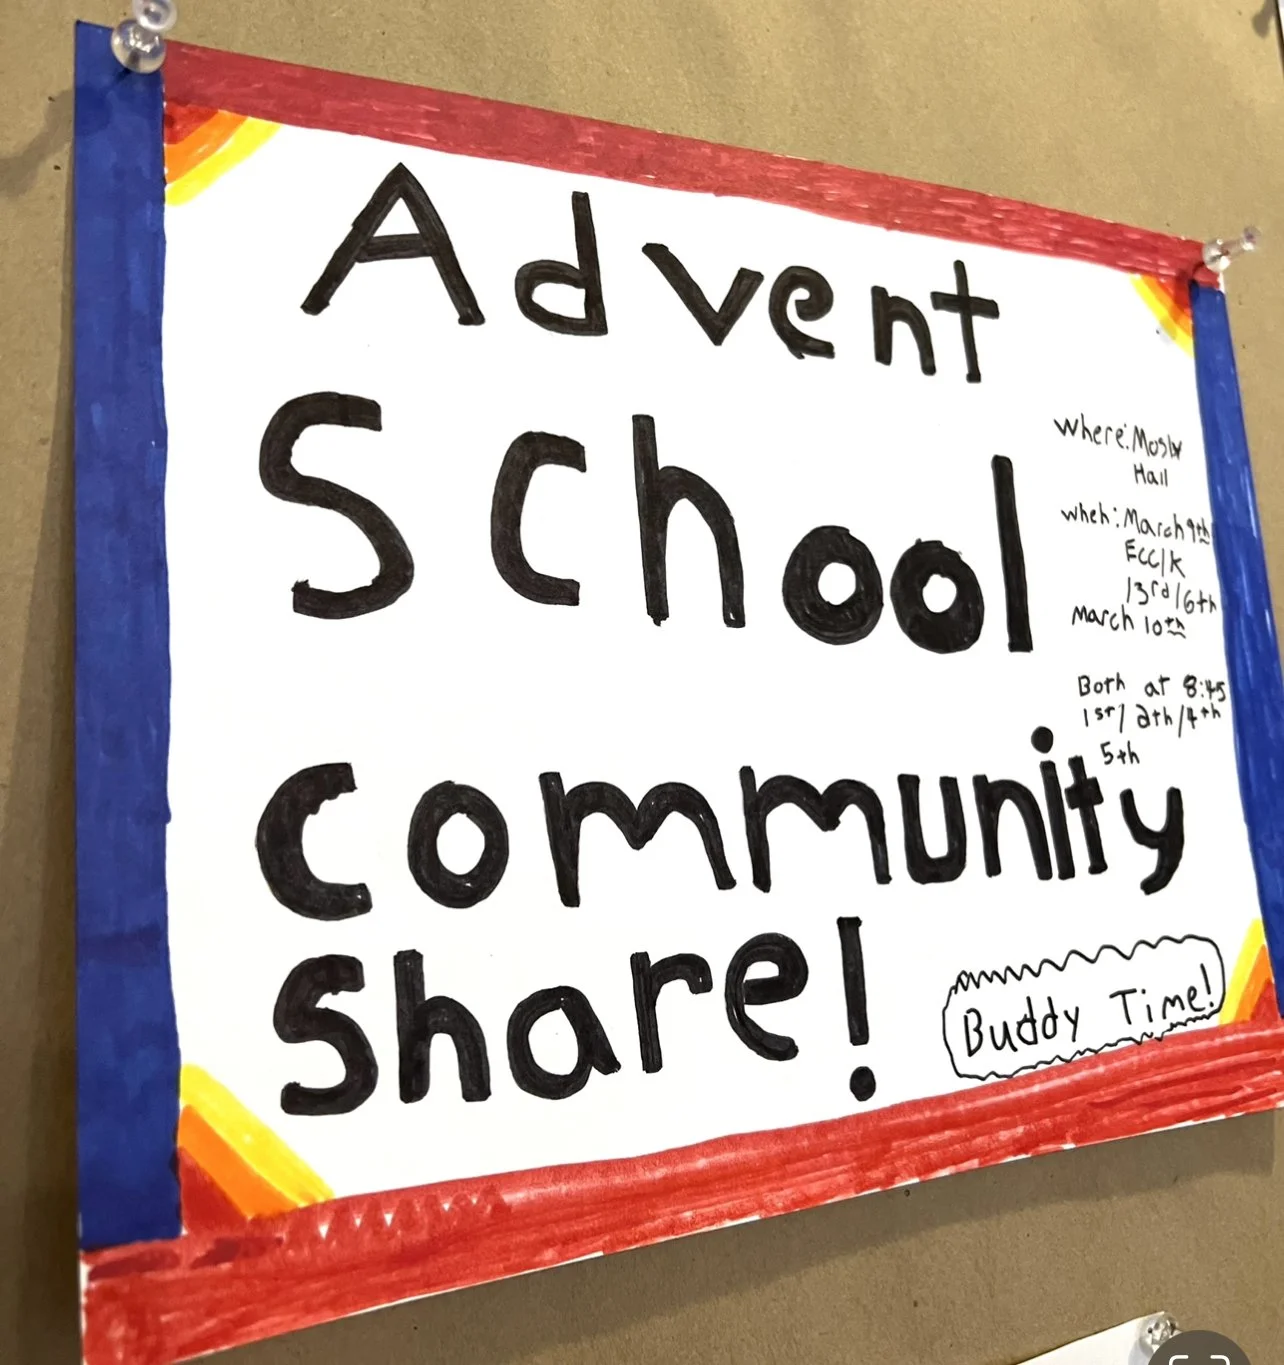 Advent
School
community
Share!
where: Mosby
Hall
when: March 9th
ECC/K
/3rd/6th
March 10th
Both at 8:45
1st/2th/4th
5th
Buddy Time!